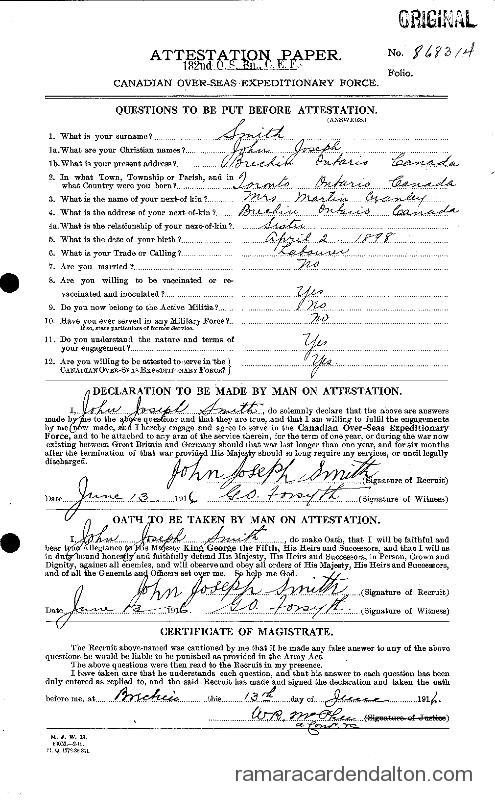 ORIGINAL
ATTESTATION PAPER. No. 868314
182nd O.S. Bn., C.E.F.
Folio.
CANADIAN OVER-SEAS EXPEDITIONARY FORCE.
QUESTIONS TO BE PUT BEFORE ATTESTATION.
(ANSWERS)
1. What is your surname? Smith
1a. What are your Christian names? John Joseph
1b. What is your present address? Brechin Ontario Canada
2. In what Town, Township or Parish, and in
what Country were you born? Toronto Ontario Canada
3. What is the name of your next-of-kin? Mrs Martin
4. What is the address of your next-of-kin? Brechin Ontario Canada
4a. What is the relationship of your next-of-kin? Sister
5. What is the date of your birth? April 2 - 1898
6. What is your Trade or Calling? Labourer
7. Are you married? No
8. Are you willing to be vaccinated or re-
vaccinated and inoculated? Yes
9. Do you now belong to the Active Militia? No
10. Have you ever served in any Military Force? No
If so, state particulars of former Service.
11. Do you understand the nature and terms of
your engagement? Yes
12. Are you willing to be attested to serve in the
CANADIAN OVER-SEAS EXPEDITIONARY FORCE? Yes
DECLARATION TO BE MADE BY MAN ON ATTESTATION.
I, John Joseph Smith, do solemnly declare that the above are answers
made by me to the above questions and that they are true, and that I am willing to fulfil the engagements
by me now made, and I hereby engage and agree to serve in the Canadian Over-Seas Expeditionary
Force, and to be attached to any arm of the service therein, for the term of one year, or during the war now
existing between Great Britain and Germany should that war last longer than one year, and for six months
after the termination of that war provided His Majesty should so long require my services, or until legally
discharged.
John Joseph Smith (Signature of Recruit)
Date June 13 1916 Geo. Forsyth (Signature of Witness)
OATH TO BE TAKEN BY MAN ON ATTESTATION.
I, John Joseph Smith, do make Oath, that I will be faithful and
bear true Allegiance to His Majesty King George the Fifth, His Heirs and Successors, and that I will as
in duty bound honestly and faithfully defend His Majesty, His Heirs and Successors, in Person, Crown and
Dignity, against all enemies, and will observe and obey all orders of His Majesty, His Heirs and Successors,
and of all the Generals and Officers set over me. So help me God.
John Joseph Smith (Signature of Recruit)
Date June 13 1916 Geo. Forsyth (Signature of Witness)
CERTIFICATE OF MAGISTRATE.
The Recruit above-named was cautioned by me that if he made any false answer to any of the above
questions he would be liable to be punished as provided in the Army Act.
The above questions were then read to the Recruit in my presence.
I have taken care that he understands each question, and that his answer to each question has been
duly entered as replied to, and the said Recruit has made and signed the declaration and taken the oath
before me, at Brechin this 13th day of June 1916.
(Signature of Justice)
ramaracardendalton.com